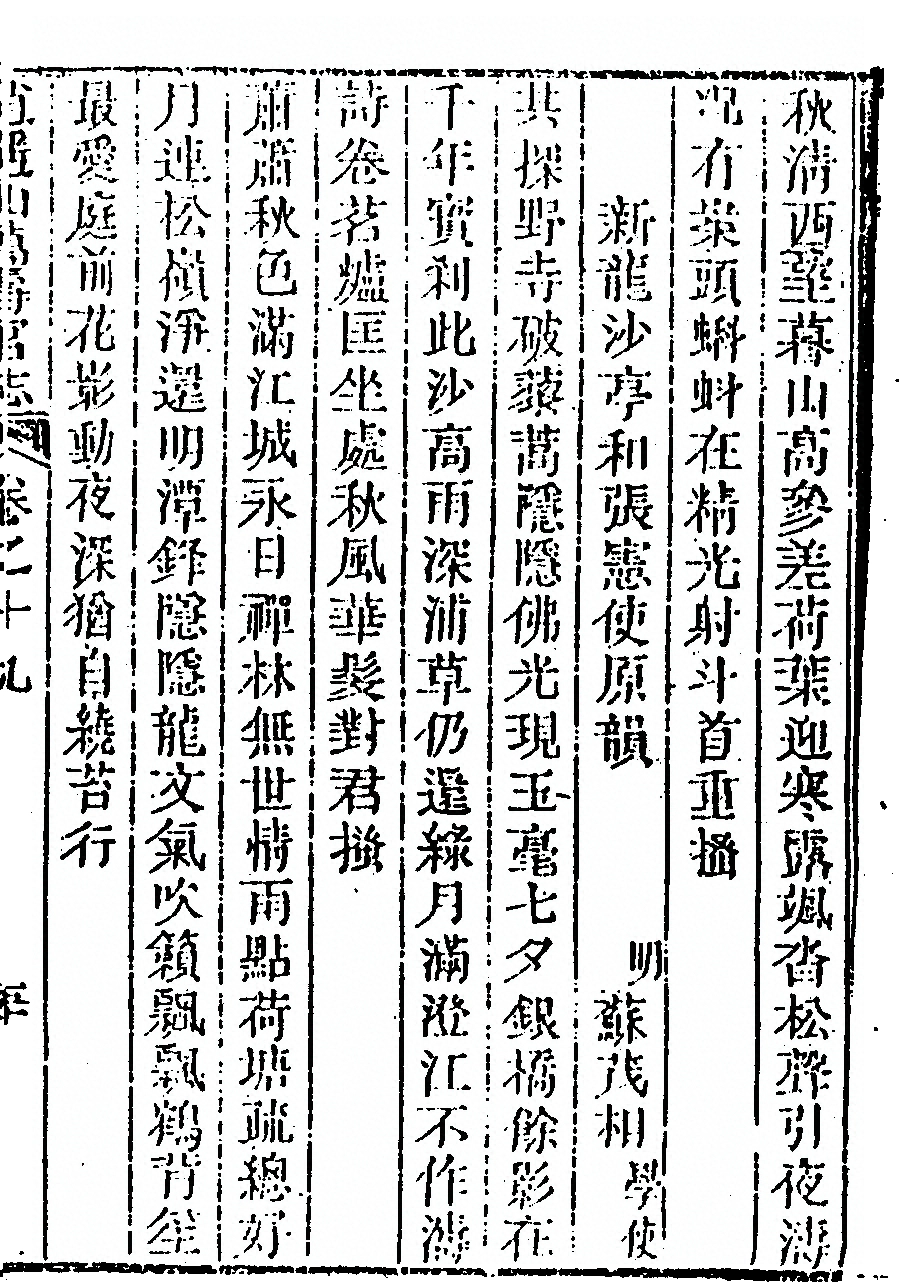 秋淸西望暮山高參差荷葉迎寒露颯沓松聲引夜濤
況有案頭蝌蚪在精光射斗首重搔
新龍沙亭和張憲使原韻 明蘇茂相學使
共探野寺破蓁蒿隱隱佛光現玉毫七夕銀橋餘影在
千年寳刹此沙高雨深浦草仍還綠月滿澄江不作濤
詩卷茗爐匡坐處秋風華髮對君搔
蕭蕭秋色滿江城永日禪林無世情雨點荷塘疏總好
月連松嶺淨還明潭鋒隱隱龍文氣吹籟飄飄鶴背笙
最愛庭前花影動夜深猶自繞苔行
逍遙山萬壽宮志 卷之十九